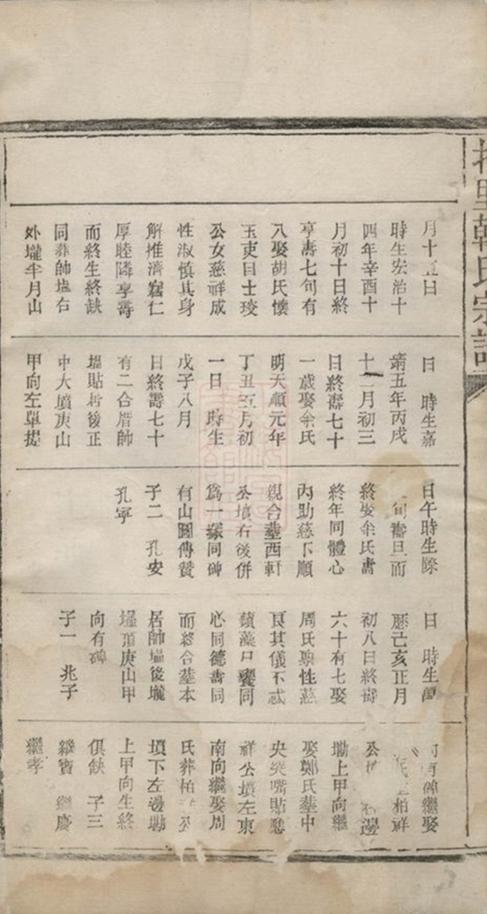 韓氏宗譜
月十五日
時生宏治十
四年辛酉十
月初十日終
享壽七旬有
八娶胡氏懷
玉吏目士琰
公女慈祥成
性淑慎其身
解推濟窮仁
厚睦隣享壽
而終生終缺
同葬帥塩右
外壠半月山
日 時生嘉
靖五年丙戌
十二月初三
日終壽七十
一歲娶余氏
明天順元年
丁丑五月初
一日 時生
戊子八月
日終壽七十
有二合厝帥
塩貼楮後正
中大墳庚山
甲向左單提
日午時生
旬壽旦而
終娶余氏壽
終年同體心
內助慈下順
親合塟西軒
公墳右後併
為一塚同碑
有山圖傳贊
子二 孔安
孔寧
日 時生
歷己亥正月
初八日終壽
六十有七娶
周氏 性慈
良其儀不忒
蘋藻日饗同
心同德壽同
而終合塟本
居帥塩後壠
塩頂庚山甲
向有碑
子一 兆子
繼娶
相祥
公 右邊
塝上甲向繼
娶鄭氏塟中
央 嘴貼慈
祥公墳左東
南向繼娶周
氏葬柏 公
墳下左邊塝
上甲向生終
俱缺 子三
繼寶 繼慶
繼孝